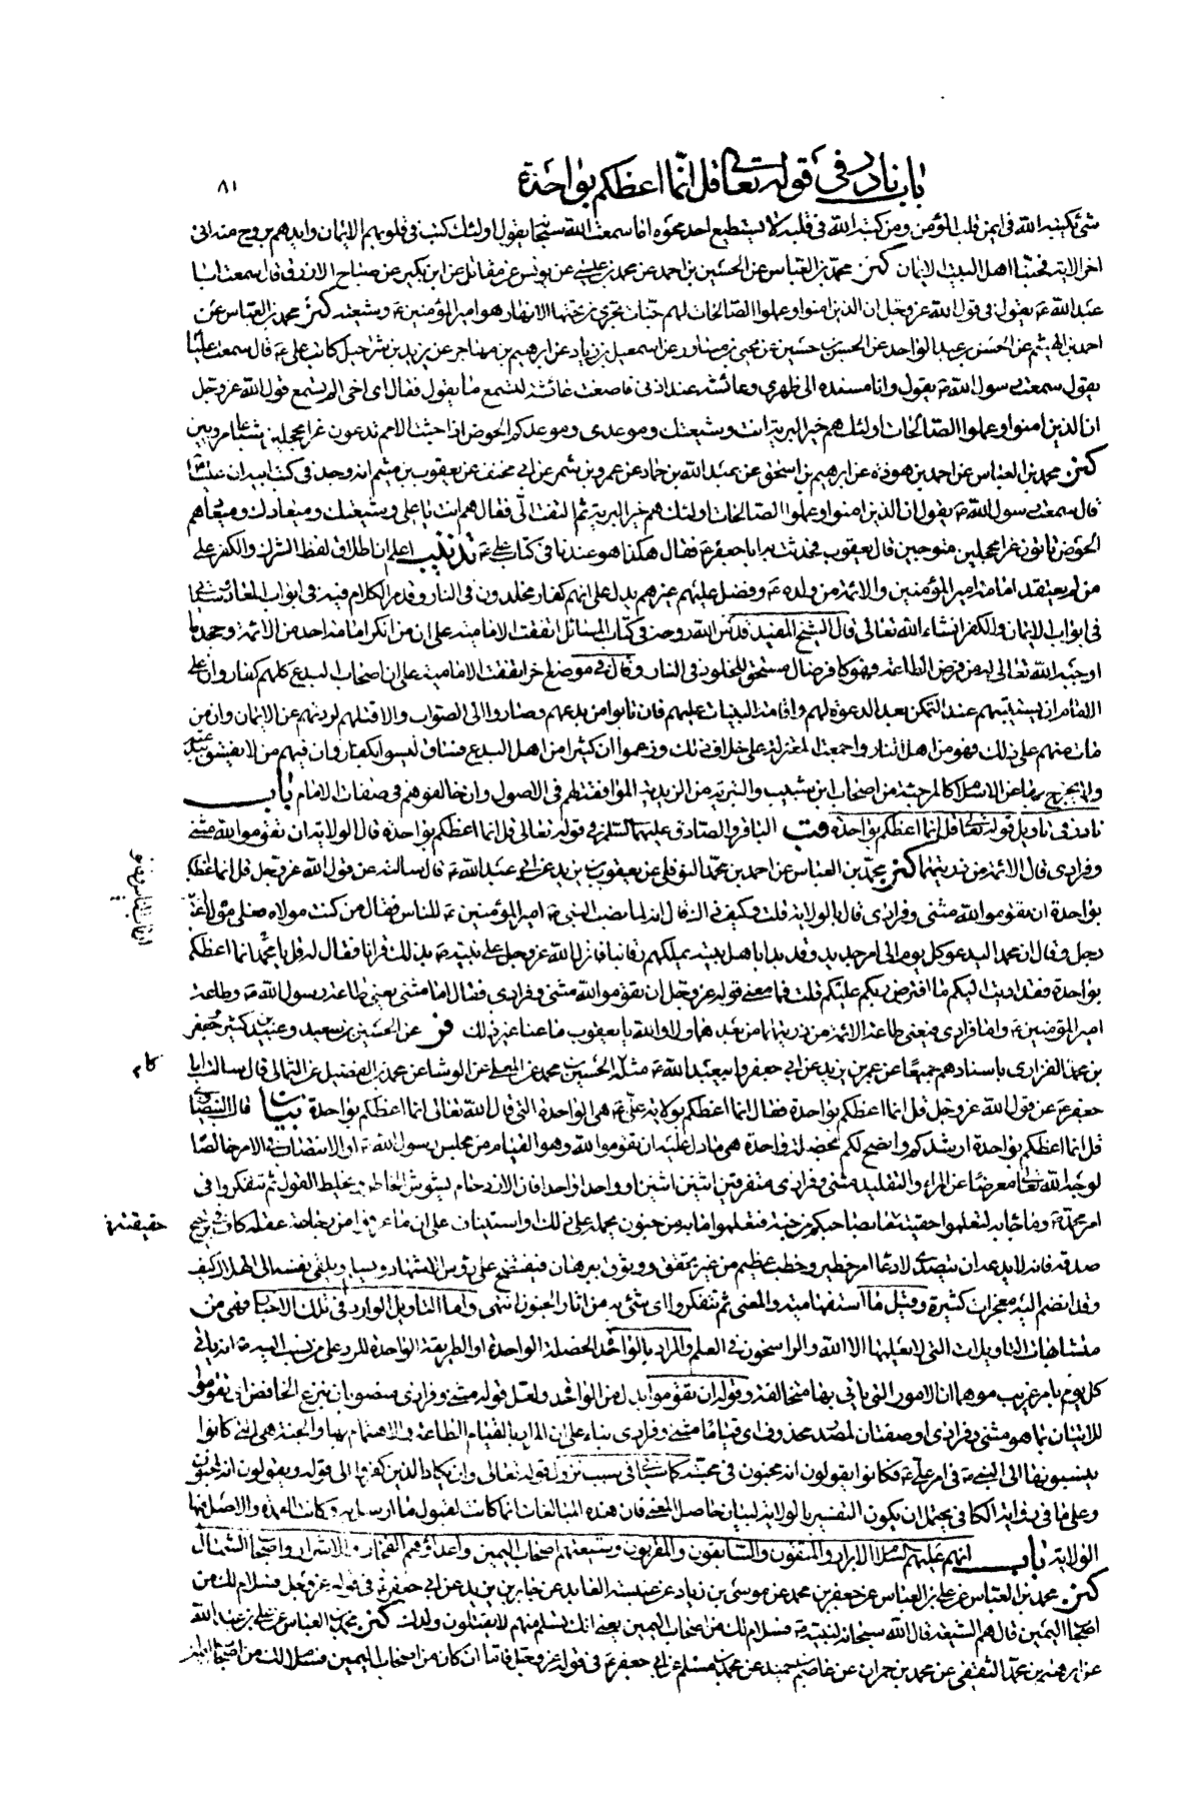 باب نادر في قوله تعالى قل انّما اعظكم بواحدة
٨١
شئ يكتبه الله في ايمن قلب المؤمن ومن كتبه الله في قلبه لا يستطيع احد محوه اما سمعت الله سبحانه يقول اولئك كتب في قلوبهم الايمان وايدهم بروح منه الى
اخر الاية فحبنا اهل البيت الايمان كنز محمد بن العباس عن الحسين بن احمد عن محمد بن عيسى عن يونس عن مقاتل عن ابن بكير عن صباح الازرق قال سمعت ابا
عبد الله ع يقول في قول الله عز وجل ان الذين امنوا وعملوا الصالحات لهم جنات تجري من تحتها الانهار هو امير المؤمنين ع وشيعته كنز محمد بن العباس عن
احمد بن الهيثم عن الحسن بن عبد الواحد عن الحسن بن حسين عن يحيى بن مساور عن اسمعيل بن زياد عن ابرهيم بن مهاجر عن يزيد بن شراحيل كاتب علي ع قال سمعت عليا
يقول سمعت رسول الله ص يقول وانا مسنده الى ظهري وعائشة عند اذني فاصغت عائشة لتسمع ما يقول فقال اى اخى الم تسمع قول الله عز وجل
ان الذين امنوا وعملوا الصالحات اولئك هم خير البرية انت وشيعتك وموعدي وموعدكم الحوض اذا جثت الامم تدعون غرا محجلين شباعا مرويين
كنز محمد بن العباس عن احمد بن هوذة عن ابرهيم بن اسحق عن عبد الله بن حماد عن عمرو بن شمر عن ابي مخنف عن يعقوب بن ميثم انه وجد في كتب ابيه ان عليا
قال سمعت رسول الله ص يقول ان الذين امنوا وعملوا الصالحات اولئك هم خير البرية ثم التفت الى فقال هم انت يا علي وشيعتك وميعادك وميعادهم
الحوض تاتون غرا محجلين متوجين قال يعقوب فحدثت به ابا جعفر ع فقال هكذا هو عندنا في كتاب علي ع تذنيب اعلم ان اطلاق لفظ الشرك والكفر على
من لم يعتقد امامة امير المؤمنين والائمة من ولده ع وفضل عليهم غيرهم يدل على انهم كفار مخلدون في النار وقد مر الكلام فيه في ابواب المعاد وسياتي
في ابواب الايمان والكفر انشاء الله تعالى قال الشيخ المفيد قدس الله روحه في كتاب المسائل اتفقت الامامية على ان من انكر امامة احد من الائمة وجحد ما
اوجبه الله تعالى له من فرض الطاعة فهو كافر ضال مستحق للخلود في النار وقال في موضع اخر اتفقت الامامية على ان اصحاب البدع كلهم كفار وان على
الامام ان يستتيبهم عند التمكن بعد الدعوة لهم واقامة البينات عليهم فان تابوا من بدعهم وصاروا الى الصواب والا قتلهم لردتهم عن الايمان وان من
مات منهم على ذلك فهو من اهل النار واجمعت المعتزلة على خلاف ذلك وزعموا ان كثيرا من اهل البدع فساق ليسوا بكفار وان فيهم من لا يفسق ببدعته
ولا يخرج بها عن الاسلام كالمرجئة من اصحاب ابن شبيب والبترية من الزيدية الموافقة لهم في الاصول وان خالفوهم في صفات الامام باب
نادر في تاويل قوله تعالى قل انما اعظكم بواحدة قب الباقر والصادق عليهما السلم في قوله تعالى قل انما اعظكم بواحدة قال الولاية ان تقوموا لله مثنى
وفرادى قال الائمة من ذريتهما كنز محمد بن العباس عن احمد بن محمد النوفلي عن يعقوب بن يزيد عن ابي عبد الله ع قال سالته عن قول الله عز وجل قل انما اعظكم
بواحدة ان تقوموا لله مثنى وفرادى قال بالولاية قلت وكيف ذاك قال انه لما نصب النبي ص امير المؤمنين ع للناس فقال من كنت مولاه فعلي مولاه اغتابه
رجل وقال ان محمدا ليدعو كل يوم الى امر جديد وقد بدا باهل بيته يملكهم رقابنا فانزل الله عز وجل على نبيه ص بذلك قرانا فقال له قل يا محمد انما اعظكم
بواحدة فقد اديت اليكم ما افترض ربكم عليكم قلت فما معنى قوله عز وجل ان تقوموا لله مثنى وفرادى فقال اما مثنى يعني طاعة رسول الله ص وطاعة
امير المؤمنين ع واما فرادى فيعني طاعة الائمة من ذريتهما من بعدهما ولا والله يا يعقوب ما عنا غير ذلك فر عن الحسين بن سعيد وعبيد بن كثير وجعفر
بن محمد الفزاري باسنادهم جميعا عن عمر بن يزيد عن ابي جعفر وابي عبد الله ع مثله الحسين بن محمد عن المعلى عن الوشا عن محمد بن الفضيل عن الثمالي قال سالت ابا
جعفر ع عن قول الله عز وجل قل انما اعظكم بواحدة فقال انما اعظكم بولاية علي ع هي الواحدة التي قال الله تعالى انما اعظكم بواحدة بيان قال البيضاوي
قل انما اعظكم بواحدة ارشدكم وانصح لكم بخصلة واحدة هي ما دل عليه ان تقوموا لله وهو القيام من مجلس رسول الله ص او الانتصاب في الامر خالصا
لوجه الله تعالى معرضا عن المراء والتقليد مثنى وفرادى متفرقين اثنين اثنين او واحدا واحدا فان الازدحام يشوش الخاطر ويخلط القول ثم تتفكروا في
امر محمد ص وما جاء به لتعلموا حقيقته ما بصاحبكم من جنة فتعلموا ما به من جنون يحمله على ذلك او استيناف على ان ما عرفوا من رجاحة عقله كاف في ترجيح
صدقه فانه لا يدعه ان يتصدى لادعاء امر خطير وخطب عظيم من غير تحقق ووثوق ببرهان فيفتضح على رؤس الاشهاد ويسلم ويلقى نفسه الى الهلاك كيف
وقد انضم اليه معجزات كثيرة وقيل ما استفهامية والمعنى ثم تتفكروا اى شئ به من اثار الجنون انتهى واما التاويل الوارد في تلك الاخبار فهي من
متشابهات التاويلات التي لا يعلمها الا الله والراسخون في العلم والمراد بالواحدة الخصلة الواحدة او الطريقة الواحدة للرد على من نسب اليه ص انه ياتي
كل يوم بامر غريب موهما ان الامور التي ياتي بها متخالفة وقوله ان تقوموا بدل من الواحدة ولعل قوله مثنى وفرادى منصوبان بنزع الخافض اى تقوموا
للاتيان بما هو مثنى وفرادى او صفتان لمصدر محذوف اى قياما مثنى وفرادى بناء على ان المراد بالقيام الطاعة والاهتمام بها والجنة هي التي كانوا
ينسبونها الى النبي ص في امر علي ع فكانوا يقولون انه مجنون في محبته كما سياتي في سبب نزول قوله تعالى وان يكاد الذين كفروا الى قوله ويقولون انه لمجنون
وعلى ما في رواية الكافي يحتمل ان يكون التفسير بالولاية لبيان حاصل المعنى فان هذه المبالغات انما كانت لقبول ما ارسل به وكانت العمدة والاصل فيها
الولاية باب انهم عليهم السلام الابرار والمتقون والسابقون والمقربون وشيعتهم اصحاب اليمين واعداؤهم الفجار والاشرار واصحاب الشمال
كنز محمد بن العباس عن علي بن العباس عن جعفر بن محمد عن موسى بن زياد عن عنبسة العابد عن جابر بن يزيد عن ابي جعفر ع في قوله عز وجل فسلام لك من
اصحاب اليمين قال هم الشيعة قال الله سبحانه لنبيه ص فسلام لك من اصحاب اليمين يعني انك تسلم منهم لا يقتلون ولدك كنز محمد بن العباس عن علي بن عبد الله
عن ابرهيم بن محمد الثقفي عن محمد بن عمران عن عاصم بن حميد عن محمد بن مسلم عن ابي جعفر ع في قوله عز وجل فاما ان كان من اصحاب اليمين فسلام لك من اصحاب اليمين
كا
حقيقته